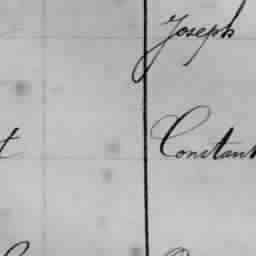 Joseph
t Constant